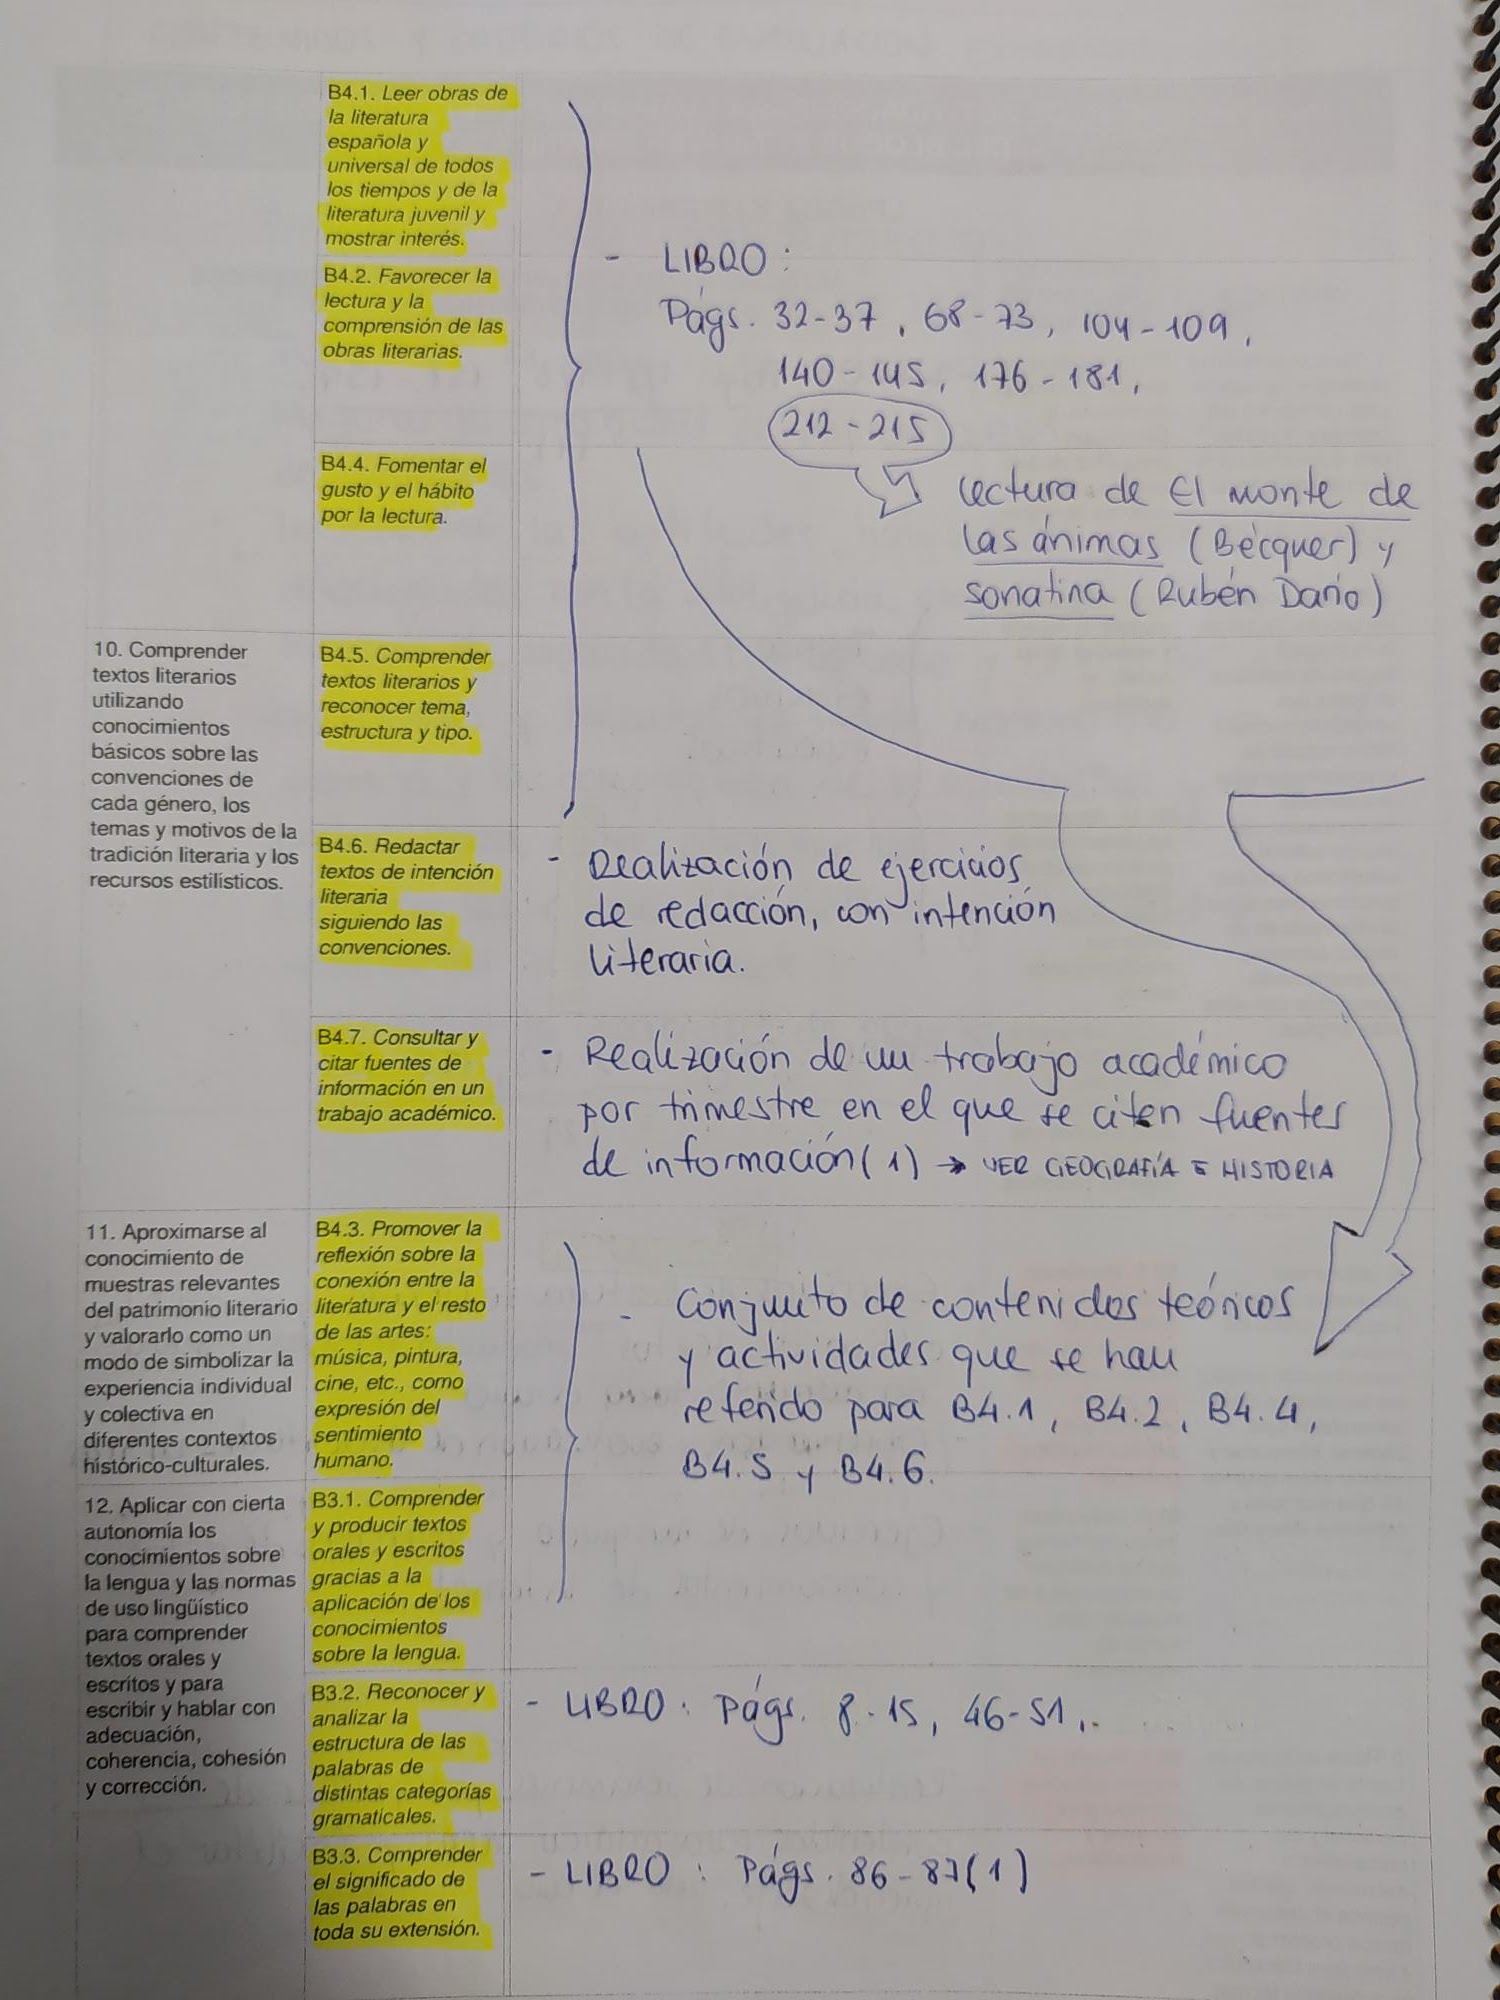 B4.1. Leer obras de
la literatura
española y
universal de todos
los tiempos y de la
literatura juvenil y
mostrar interés.
B4.2. Favorecer la
lectura y la
comprensión de las
obras literarias.
- LIBRO :
Págs. 32-37, 68-73, 104-109,
140-145, 176-181,
212-215
B4.4. Fomentar el
gusto y el hábito
por la lectura.
Lectura de El monte de
las ánimas (Bécquer) y
sonatina (Rubén Darío)
10. Comprender
textos literarios
utilizando
conocimientos
básicos sobre las
convenciones de
cada género, los
temas y motivos de la
tradición literaria y los
recursos estilísticos.
B4.5. Comprender
textos literarios y
reconocer tema,
estructura y tipo.
B4.6. Redactar
textos de intención
literaria
siguiendo las
convenciones.
- Realización de ejercicios
de redacción, con intención
literaria.
B4.7. Consultar y
citar fuentes de
información en un
trabajo académico.
- Realización de un trabajo académico
por trimestre en el que se citen fuentes
de información (1) → VER GEOGRAFÍA E HISTORIA
11. Aproximarse al
conocimiento de
muestras relevantes
del patrimonio literario
y valorarlo como un
modo de simbolizar la
experiencia individual
y colectiva en
diferentes contextos
histórico-culturales.
B4.3. Promover la
reflexión sobre la
conexión entre la
literatura y el resto
de las artes:
música, pintura,
cine, etc., como
expresión del
sentimiento
humano.
- Conjunto de contenidos teóricos
y actividades que se han
referido para B4.1, B4.2, B4.4,
B4.5 y B4.6.
12. Aplicar con cierta
autonomía los
conocimientos sobre
la lengua y las normas
de uso lingüístico
para comprender
textos orales y
escritos y para
escribir y hablar con
adecuación,
coherencia, cohesión
y corrección.
B3.1. Comprender
y producir textos
orales y escritos
gracias a la
aplicación de los
conocimientos
sobre la lengua.
B3.2. Reconocer y
analizar la
estructura de las
palabras de
distintas categorías
gramaticales.
- LIBRO : Págs. 8-15, 46-51,..
B3.3. Comprender
el significado de
las palabras en
toda su extensión.
- LIBRO : Págs. 86-87(1)